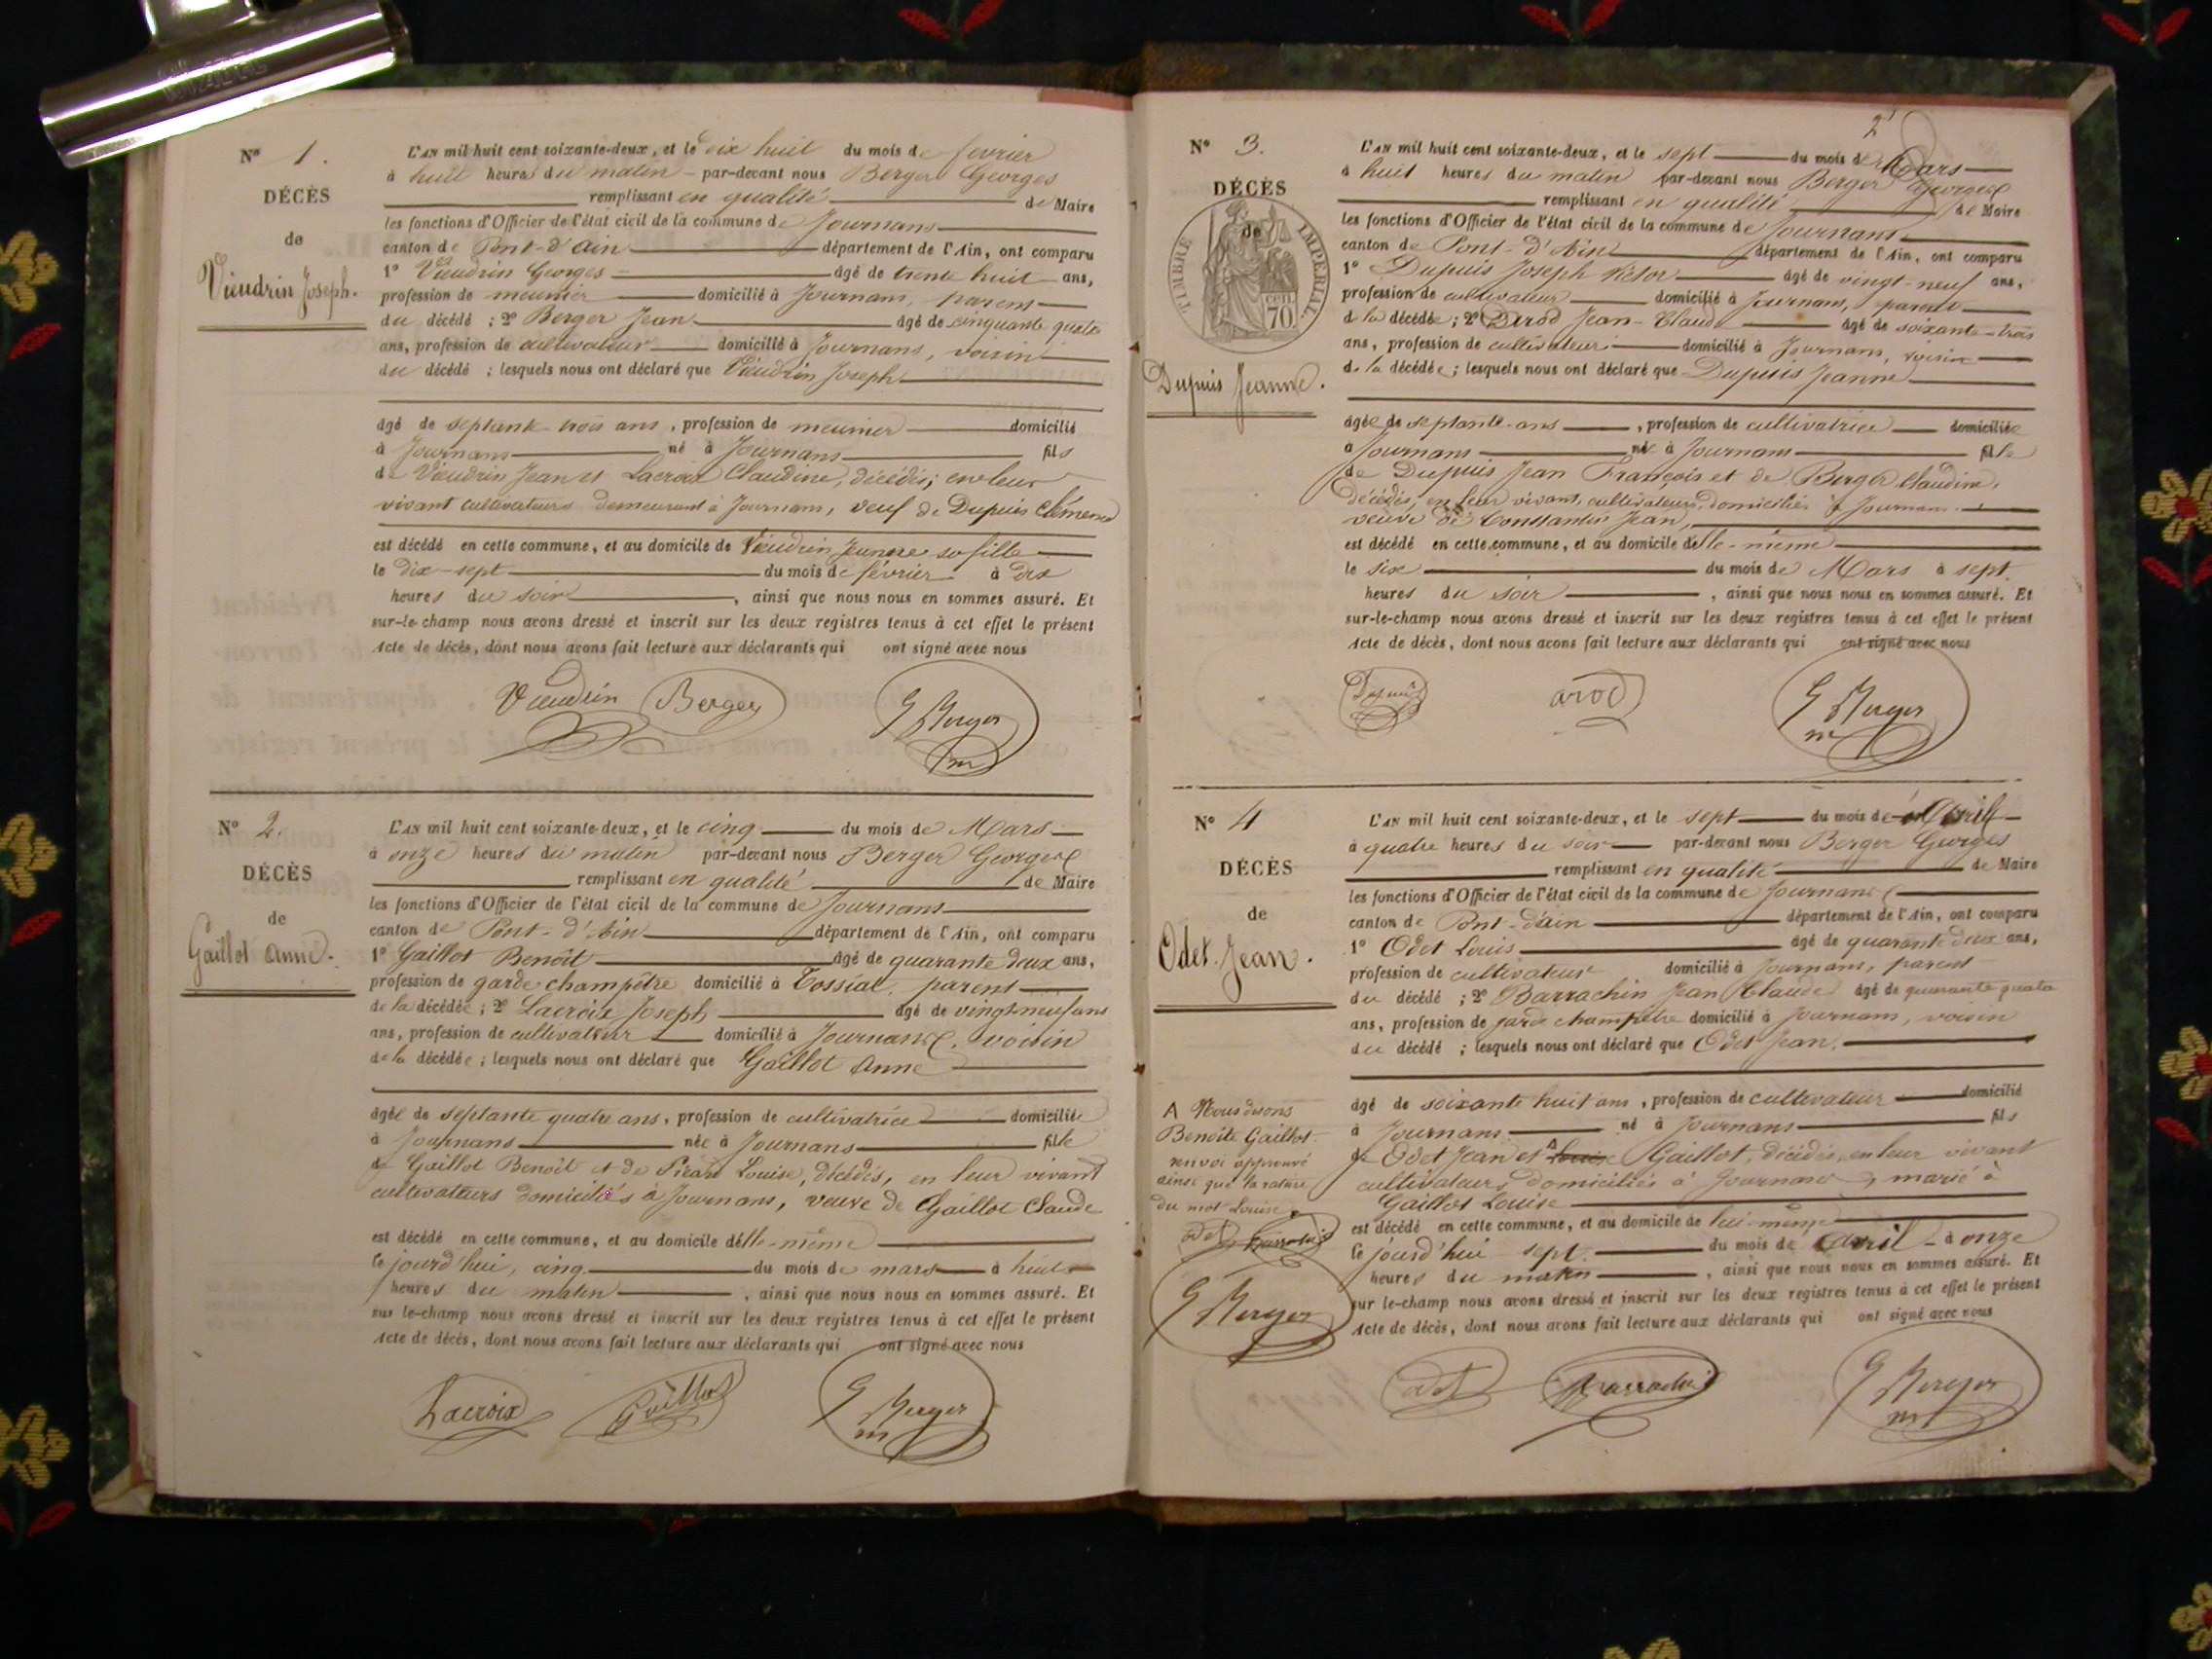 N° 1.
DÉCÈS
de
Vieudrin Joseph.
L'AN mil huit cent soixante-deux, et le dix huit du mois de fevrier
à huit heures du matin par-devant nous Berger Georges
remplissant en qualité de Maire
les fonctions d'Officier de l'état civil de la commune de Journans
canton de Pont-d'ain département de l'Ain, ont comparu
1° Vieudrin Georges âgé de trente huit ans,
profession de meunier domicilié à Journans, parent
du décédé ; 2° Berger Jean âgé de cinquante quatre
ans, profession de cultivateur domicilié à Journans, voisin
du décédé ; lesquels nous ont déclaré que Vieudrin Joseph
âgé de septante trois ans, profession de meunier domicilié
à Journans né à Journans fils
de Vieudrin Jean et Lacroix Claudine, décédés; en leur
vivant cultivateurs demeurant à Journans, veuf de Dupuis Clémence
est décédé en cette commune, et au domicile de Vieudrin Jeanne sa fille
le dix-sept du mois de février à dix
heures du soir, ainsi que nous nous en sommes assuré. Et
sur-le-champ nous avons dressé et inscrit sur les deux registres tenus à cet effet le présent
Acte de décès, dont nous avons fait lecture aux déclarants qui ont signé avec nous
Vieudrin Berger G Berger
m
N° 2.
DÉCÈS
de
Gaillot Anne.
L'AN mil huit cent soixante-deux, et le cinq du mois de Mars
à onze heures du matin par-devant nous Berger Georges
remplissant en qualité de Maire
les fonctions d'Officier de l'état civil de la commune de Journans
canton de Pont-d'Ain département de l'Ain, ont comparu
1° Gaillot Benoît âgé de quarante deux ans,
profession de garde champêtre domicilié à Tossiat, parent
de la décédée ; 2° Lacroix Joseph âgé de vingt-neuf ans
ans, profession de cultivateur domicilié à Journans, voisin
de la décédée ; lesquels nous ont déclaré que Gaillot Anne
âgée de septante quatre ans, profession de cultivatrice domiciliée
à Journans née à Journans fille
de Gaillot Benoît et de Louise, décédés, en leur vivant
cultivateurs domiciliés à Journans, veuve de Gaillot Claude
est décédé en cette commune, et au domicile d'elle-même
ce jourd'hui, cinq du mois de mars à huit
heures du matin, ainsi que nous nous en sommes assuré. Et
sur le-champ nous avons dressé et inscrit sur les deux registres tenus à cet effet le présent
Acte de décès, dont nous avons fait lecture aux déclarants qui ont signé avec nous
Lacroix Gaillot G Berger
m
2
N° 3.
DÉCÈS
de
TIMBRE IMPÉRIAL
70 cen.
Dupuis Jeanne.
L'AN mil huit cent soixante-deux, et le sept du mois de Mars
à huit heures du matin par-devant nous Berger Georges
remplissant en qualité de Maire
les fonctions d'Officier de l'état civil de la commune de Journans
canton de Pont-d'Ain département de l'Ain, ont comparu
1° Dupuis Joseph Victor âgé de vingt-neuf ans,
profession de cultivateur domicilié à Journans, parent
de la décédée ; 2° Jean-Claude âgé de soixante-trois
ans, profession de cultivateur domicilié à Journans, voisin
de la décédée ; lesquels nous ont déclaré que Dupuis Jeanne
âgée de septante-ans, profession de cultivatrice domiciliée
à Journans née à Journans fille
de Dupuis Jean François et de Berger Claudine,
décédés, en leur vivant, cultivateurs, domiciliés à Journans
veuve de Constantin Jean,
est décédé en cette commune, et au domicile d'elle-même
le six du mois de Mars à sept
heures du soir, ainsi que nous nous en sommes assuré. Et
sur-le-champ nous avons dressé et inscrit sur les deux registres tenus à cet effet le présent
Acte de décès, dont nous avons fait lecture aux déclarants qui ont signé avec nous
Dupuis arod G Berger
m
N° 4
DÉCÈS
de
Odet Jean.
L'AN mil huit cent soixante-deux, et le sept du mois de Avril
à quatre heures du soir par-devant nous Berger Georges
remplissant en qualité de Maire
les fonctions d'Officier de l'état civil de la commune de Journans
canton de Pont-d'ain département de l'Ain, ont comparu
1° Odet Louis âgé de quarante deux ans,
profession de cultivateur domicilié à Journans, parent
du décédé ; 2° Barrachin Jean Claude âgé de quarante quatre
ans, profession de garde champêtre domicilié à Journans, voisin
du décédé ; lesquels nous ont déclaré que Odet Jean.
âgé de soixante huit ans, profession de cultivateur domicilié
à Journans né à Journans fils
de Odet Jean et Louise Gaillot, décédés, en leur vivant
cultivateurs, domiciliés à Journans, marié à
Gaillot Louise
est décédé en cette commune, et au domicile de lui-même
ce jourd'hui sept du mois de avril à onze
heures du matin, ainsi que nous nous en sommes assuré. Et
sur le-champ nous avons dressé et inscrit sur les deux registres tenus à cet effet le présent
Acte de décès, dont nous avons fait lecture aux déclarants qui ont signé avec nous
A Nous disons
Benoite Gaillot.
renvoi approuvé
ainsi que la rature
du mot Louise.
Odet Barrachin
G Berger
Odet Barrachin G Berger
m